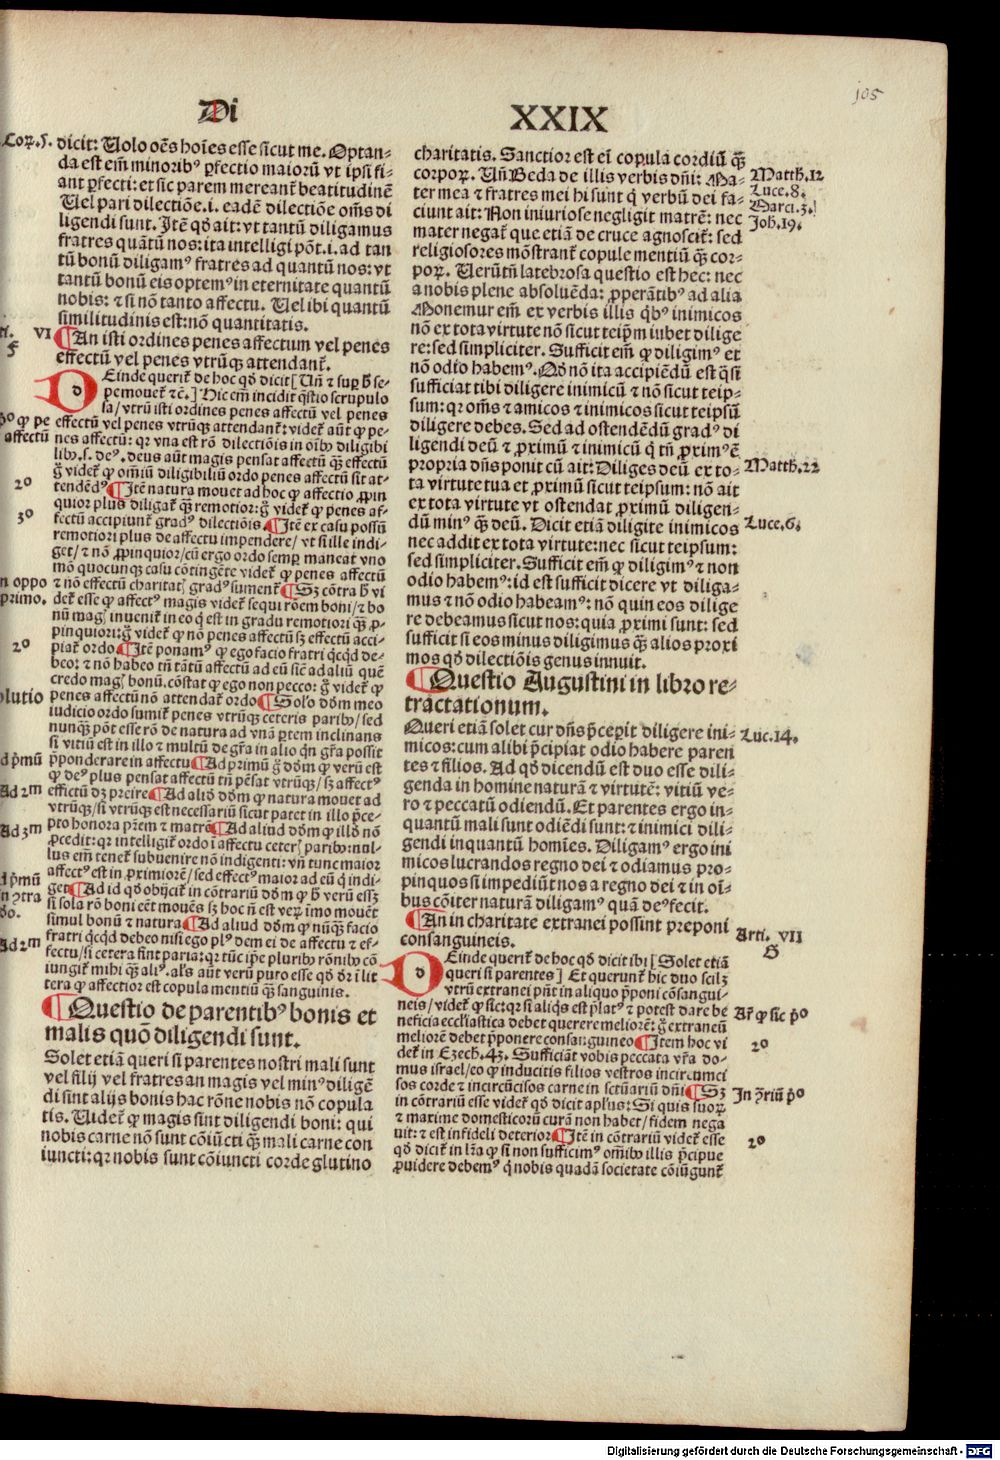 105
Di
XXIX
Coꝝ. 5.
dicit: Uolo oēs hoīes esse sicut me. Optan-
da est em̄ minoribꝰ ꝑfectio maiorū vt ipsi fi-
ant ꝑfecti: et sic parem mereant᷑ beatitudinē
Uel pari dilectiōe .i. eadē dilectiōe om̄s di
ligendi sunt. Itē qđ ait: vt tantū diligamus
fratres quātū nos: ita intelligi pōt .i. ad tan
tū bonū diligamꝰ fratres ad quantū nos: vt
tantū bonū eis optemꝰ in eternitate quantū
nobis: ⁊ si nō tanto affectu. Uel ibi quantū
similitudinis est: nō quantitatis.
VI
¶ An isti ordines penes affectum vel penes
effectū vel penes vtrūqꝫ attendant᷑.
DEinde querit᷑ de hoc qđ dicit [Uñ ⁊ suꝑ ħ se-
pe mouet᷑ ⁊c̄.] Hic em̄ incidit q̄stio scrupulo
sa/ vtrū isti ordines penes affectū vel penes
effectū vel penes vtrūqꝫ attendant᷑: videt᷑ aūt ꝙ pe-
nes affectū: qr vna est rō dilectiōis in oībꝫ diligibi
libꝫ .s. deꝰ. deus aūt magis pensat affectū qꝫ̄ effectū
g̊ videt᷑ ꝙ om̄iū diligibiliū ordo penes affectū sit at-
tendēdꝰ ¶ Itē natura mouet ad hoc ꝙ affectio ꝓpin
quior plus diligat᷑ qꝫ̄ remotior: g̊ videt᷑ ꝙ penes af-
fectū accipiunt᷑ gradꝰ dilectiōis. ¶ Itē ex casu possū
remotiori plus de affectu impendere/ vt si ille indi-
get/ ⁊ nō ꝓpinquior/ cū ergo ordo semꝑ maneat vno
mō quocunqꝫ casu cōtingēte videt᷑ ꝙ penes affectū
⁊ nō effectū charitatꝭ gradꝰ sument᷑ ¶ Sꝫ cōtra ħ vi
det᷑ esse ꝙ affectꝰ magis videt᷑ sequi rōem boni/ ⁊ bo
nū magꝭ inuenit᷑ in eo q̄ est in gradu remotiori qꝫ̄ ꝓ-
pinquiori: g̊ videt᷑ ꝙ nō penes affectū sꝫ effectū acci-
piat᷑ ordo ¶ Itē ponamꝰ ꝙ ego facio fratri q̄cqđ de-
beo: ⁊ nō habeo tn̄ tātū affectū ad eū sic̄ ad aliū quē
credo magꝭ bonū. cōstat ꝙ ego non pecco: g̊ videt᷑ ꝙ
penes affectū nō attendat᷑ ordo ¶ Solō dōm meo
iudicio ordo sumit᷑ penes vtrūqꝫ ceteris paribꝫ/ sed
nunqꝫ̄ pōt esse rō de natura ad vnā ꝑtem inclinans
si vitiū est in illo ⁊ multū de gr̄a in alio qn̄ gr̄a possit
p̄ponderare in affectu ¶ Ad primū g̊ dōm ꝙ verū est
ꝙ deꝰ plus pensat affectū tn̄ pēsat vtrūqꝫ/ sꝫ affectꝰ
effectū dꝫ preire ¶ Ad aliđ dōm ꝙ natura mouet ad
vtrūqꝫ/ si vtrūqꝫ est necessariū sicut patet in illo p̄ce-
pto honora pr̄em ⁊ matrē ¶ Ad aliud dōm ꝙ illđ nō
ꝓcedit: qr intelligit᷑ ordo ī affectu ceterꝭ paribꝫ: nul-
lus em̄ tenet᷑ subuenire nō indigenti: vn̄ tunc maior
affectꝰ est in ꝓximiorē/ sed effectꝰ maior ad eū q̄ indi-
get ¶ Ad id qđ obijcit᷑ in cōtrariū dōm ꝙ ħ verū essꝫ
si sola rō boni eēt mouēs sꝫ hoc n̄ est verꝝ īmo mouēt
simul bonū ⁊ natura ¶ Ad aliud dōm ꝙ nūqꝫ̄ facio
fratri q̄cqđ debeo nisi ego plꝰ dem ei de affectu ⁊ ef-
fectu/ si cetera sint paria: qr tūc ip̄e pluribꝫ rōnibꝫ cō
iungit᷑ mihi qꝫ̄ aliꝰ. als̄ aūt verū puro esse qđ dr̄ ī lit
tera ꝙ affectior est copula mentiū qꝫ̄ sanguinis.
¶ Questio de parentibꝰ bonis et
malis quō diligendi sunt.
Solet etiā queri si parentes nostri mali sunt
vel filij vel fratres an magis vel minꝰ diligē
di sint alijs bonis hac rōne nobis nō copula
tis. Uidet᷑ ꝙ magis sint diligendi boni: qui
nobis carne nō sunt cōiūcti qꝫ̄ mali carne con
iuncti: qr nobis sunt cōiuncti corde glutino
pº ꝙ pe
affectū
2º
3º
n oppo
primo.
2º
olutio
d pꝛmū
Ad 2m
Ad 3m
d pꝛmū
n ɔtra
Ad 2m
charitatis. Sanctior est em̄ copula cordiū qꝫ̄
corpoꝝ. Uñ Beda de illis verbis dn̄i: Ma-
ter mea ⁊ fratres mei hi sunt q̇ verbū dei fa-
ciunt ait: Non iniuriose negligit matrē: nec
mater negat᷑ que etiā de cruce agnoscit᷑: sed
religiosores mōstrant᷑ copule mentiū qꝫ̄ cor-
poꝝ. Uerūtn̄ latebrosa questio est hec: nec
a nobis plene absoluēda: ꝓperātibꝰ ad alia
Monemur em̄ ex verbis illis q̇bꝰ inimicos
nō ex tota virtute nō sicut teip̄m iubet dilige
re: sed simpliciter. Sufficit em̄ ꝙ diligimꝰ et
nō odio habemꝰ. Qđ nō ita accipiēdū est q̄si
sufficiat tibi diligere inimicū ⁊ nō sicut teip-
sum: qr om̄s ⁊ amicos ⁊ inimicos sicut teipsū
diligere debes. Sed ad ostendēdū gradꝰ di
ligendi deū ⁊ ꝓximū ⁊ inimicū q̇ tn̄ ꝓximꝰ ē
propria dn̄s ponit cū ait: Diliges deū ex to-
ta virtute tua et ꝓximū sicut teipsum: nō ait
ex tota virtute vt ostendat ꝓximū diligen-
dū minꝰ qꝫ̄ deū. Dicit etiā diligite inimicos
nec addit ex tota virtute: nec sicut teipsum:
sed simpliciter. Sufficit em̄ ꝙ diligimꝰ ⁊ non
odio habemꝰ: id est sufficit dicere vt diliga-
mus ⁊ nō odio habeamꝰ: nō quin eos dilige
re debeamus sicut nos: quia ꝓximi sunt: sed
sufficit si eos minus diligimus qꝫ̄ alios proxi
mos qđ dilectiōis genus innuit.
¶ Questio Augustini in libro re-
tractationum.
Queri etiā solet cur dn̄s p̄ceꝑit diligere ini-
micos: cum alibi p̄cipiat odio habere paren
tes ⁊ filios. Ad qđ dicendū est duo esse dili-
genda in homine naturā ⁊ virtutē: vitiū ve-
ro ⁊ peccatū odiendū. Et parentes ergo in-
quantū mali sunt odiēdi sunt: ⁊ inimici dili-
gendi inquantū homīes. Diligamꝰ ergo ini
micos lucrandos regno dei ⁊ odiamus pro-
pinquos si impediūt nos a regno dei ⁊ in oī-
bus cōiter naturā diligamꝰ quā deꝰ fecit.
¶ An in charitate extranei possint preponi
consanguineis.
DEinde querit᷑ de hoc qđ dicit ibi [Solet etiā
queri si parentes] Et querunt᷑ hic duo scilꝫ
vtrū extranei pn̄t in aliquo p̄poni cōsangui-
neis/ videt᷑ ꝙ sic: qr si aliq̇s est p̄latꝰ ⁊ potest dare be
neficia ecclīastica debet querere meliorē: g̊ extraneū
meliorē debet p̄ponere consanguineo ¶ Item hoc vi
det᷑ in Ezech. 43. Sufficiāt vobis peccata vr̄a do-
mus israel/ eo ꝙ inducitis filios vestros incircumci
sos corde ⁊ incircūcisos carne in sctūariū dn̄i ¶ Sꝫ
in cōtrariū esse videt᷑ qđ dicit apl̄us: Si quis suoꝝ
⁊ maxime domesticorū curā non habet/ fidem nega
uit: ⁊ est infideli deterior ¶ Itē in cōtrariū videt᷑ esse
qđ dicit᷑ in lr̄a ꝙ si non sufficimꝰ om̄ibꝫ illis p̄cipue
ꝓuidere debemꝰ q̇ nobis quadā societate cōiūgunt᷑
Matth. 12
Luce. 8.
Marci. 3.
Joh. 19.
Matth. 22
Luce. 6.
Luc. 14.
Arti. VII
Ar̄ ꝙ sic pº
2º
In ɔ̄riū pº
2º
Digitalisierung gefördert durch die Deutsche Forschungsgemeinschaft - DFG